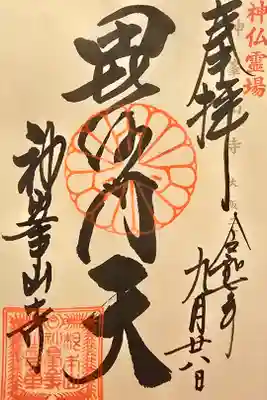 神仏霊場
奉拝
令和 年
九月廿八日
毘沙門天
神峯山寺